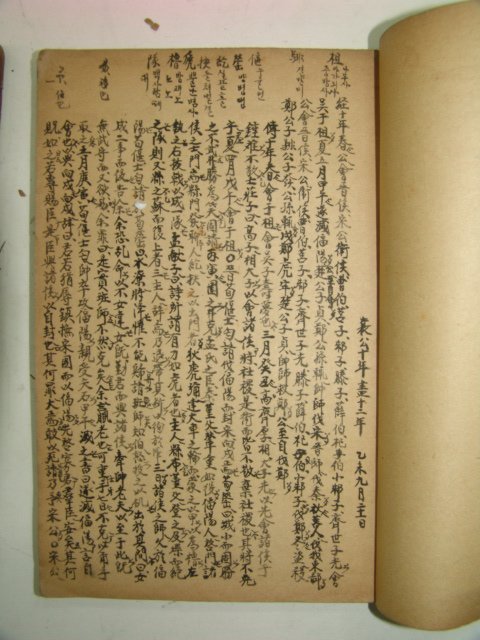 襄公十年盡十二年 乙未九月
經十年春公會晉侯宋公衛侯曹伯莒子邾子滕子薛伯杞伯小邾子齊世子光會
吳于柤夏五月甲午遂滅偪陽楚公子貞鄭公孫輒帥師伐宋晉師伐秦秋莒人伐我東鄙
公會晉侯宋公衛侯曹伯莒子邾子齊世子光滕子薛伯杞伯小邾子伐鄭冬盜殺
鄭公子騑公子發公孫輒戍鄭虎牢楚公子貞帥師救鄭公至自伐鄭
傳十年春會于柤會吳子壽夢也三月癸丑齊高厚相大子光以先會諸侯于
鍾離不敬士莊子曰高子相大子以會諸侯將社稷是衛而皆不敬棄社稷也其將不免
乎夏四月戊午會于柤○晉荀偃士匄請伐偪陽而封宋向戌焉荀罃曰城小而固勝
之不武弗勝爲笑固請丙寅圍之弗克孟氏之臣秦堇父輦重如役偪陽人啓門諸
侯之士門焉縣門發郰人紇抉之以出門者狄虒彌建大車之輪而蒙之以甲以爲櫓左
執之右拔戟以成一隊孟獻子曰詩所謂有力如虎者也主人縣布堇父登之及堞而絕
之隊則又縣之蘇而復上者三主人辭焉乃退帶其斷以徇於軍三日諸侯之師久於偪
陽荀偃士匄請於荀罃曰水潦將降懼不能歸請班師知伯怒投之以机出於其間曰女
成二事而後告余余恐亂命以不女違女既勤君而興諸侯牽帥老夫以至于此既
無武守而又欲易余罪曰是實班師不然克矣余羸老也可重任乎七日不克必爾乎
取之五月庚寅荀偃士匄帥卒攻偪陽親受矢石甲午滅之書曰遂滅偪陽言自
會也以與向戌向戌辭曰君若猶辱鎮撫宋國而以偪陽光啓寡君羣臣安矣其何
貺如之若專賜臣是臣興諸侯以自封也其何罪大焉敢以死請乃予宋公○宋公